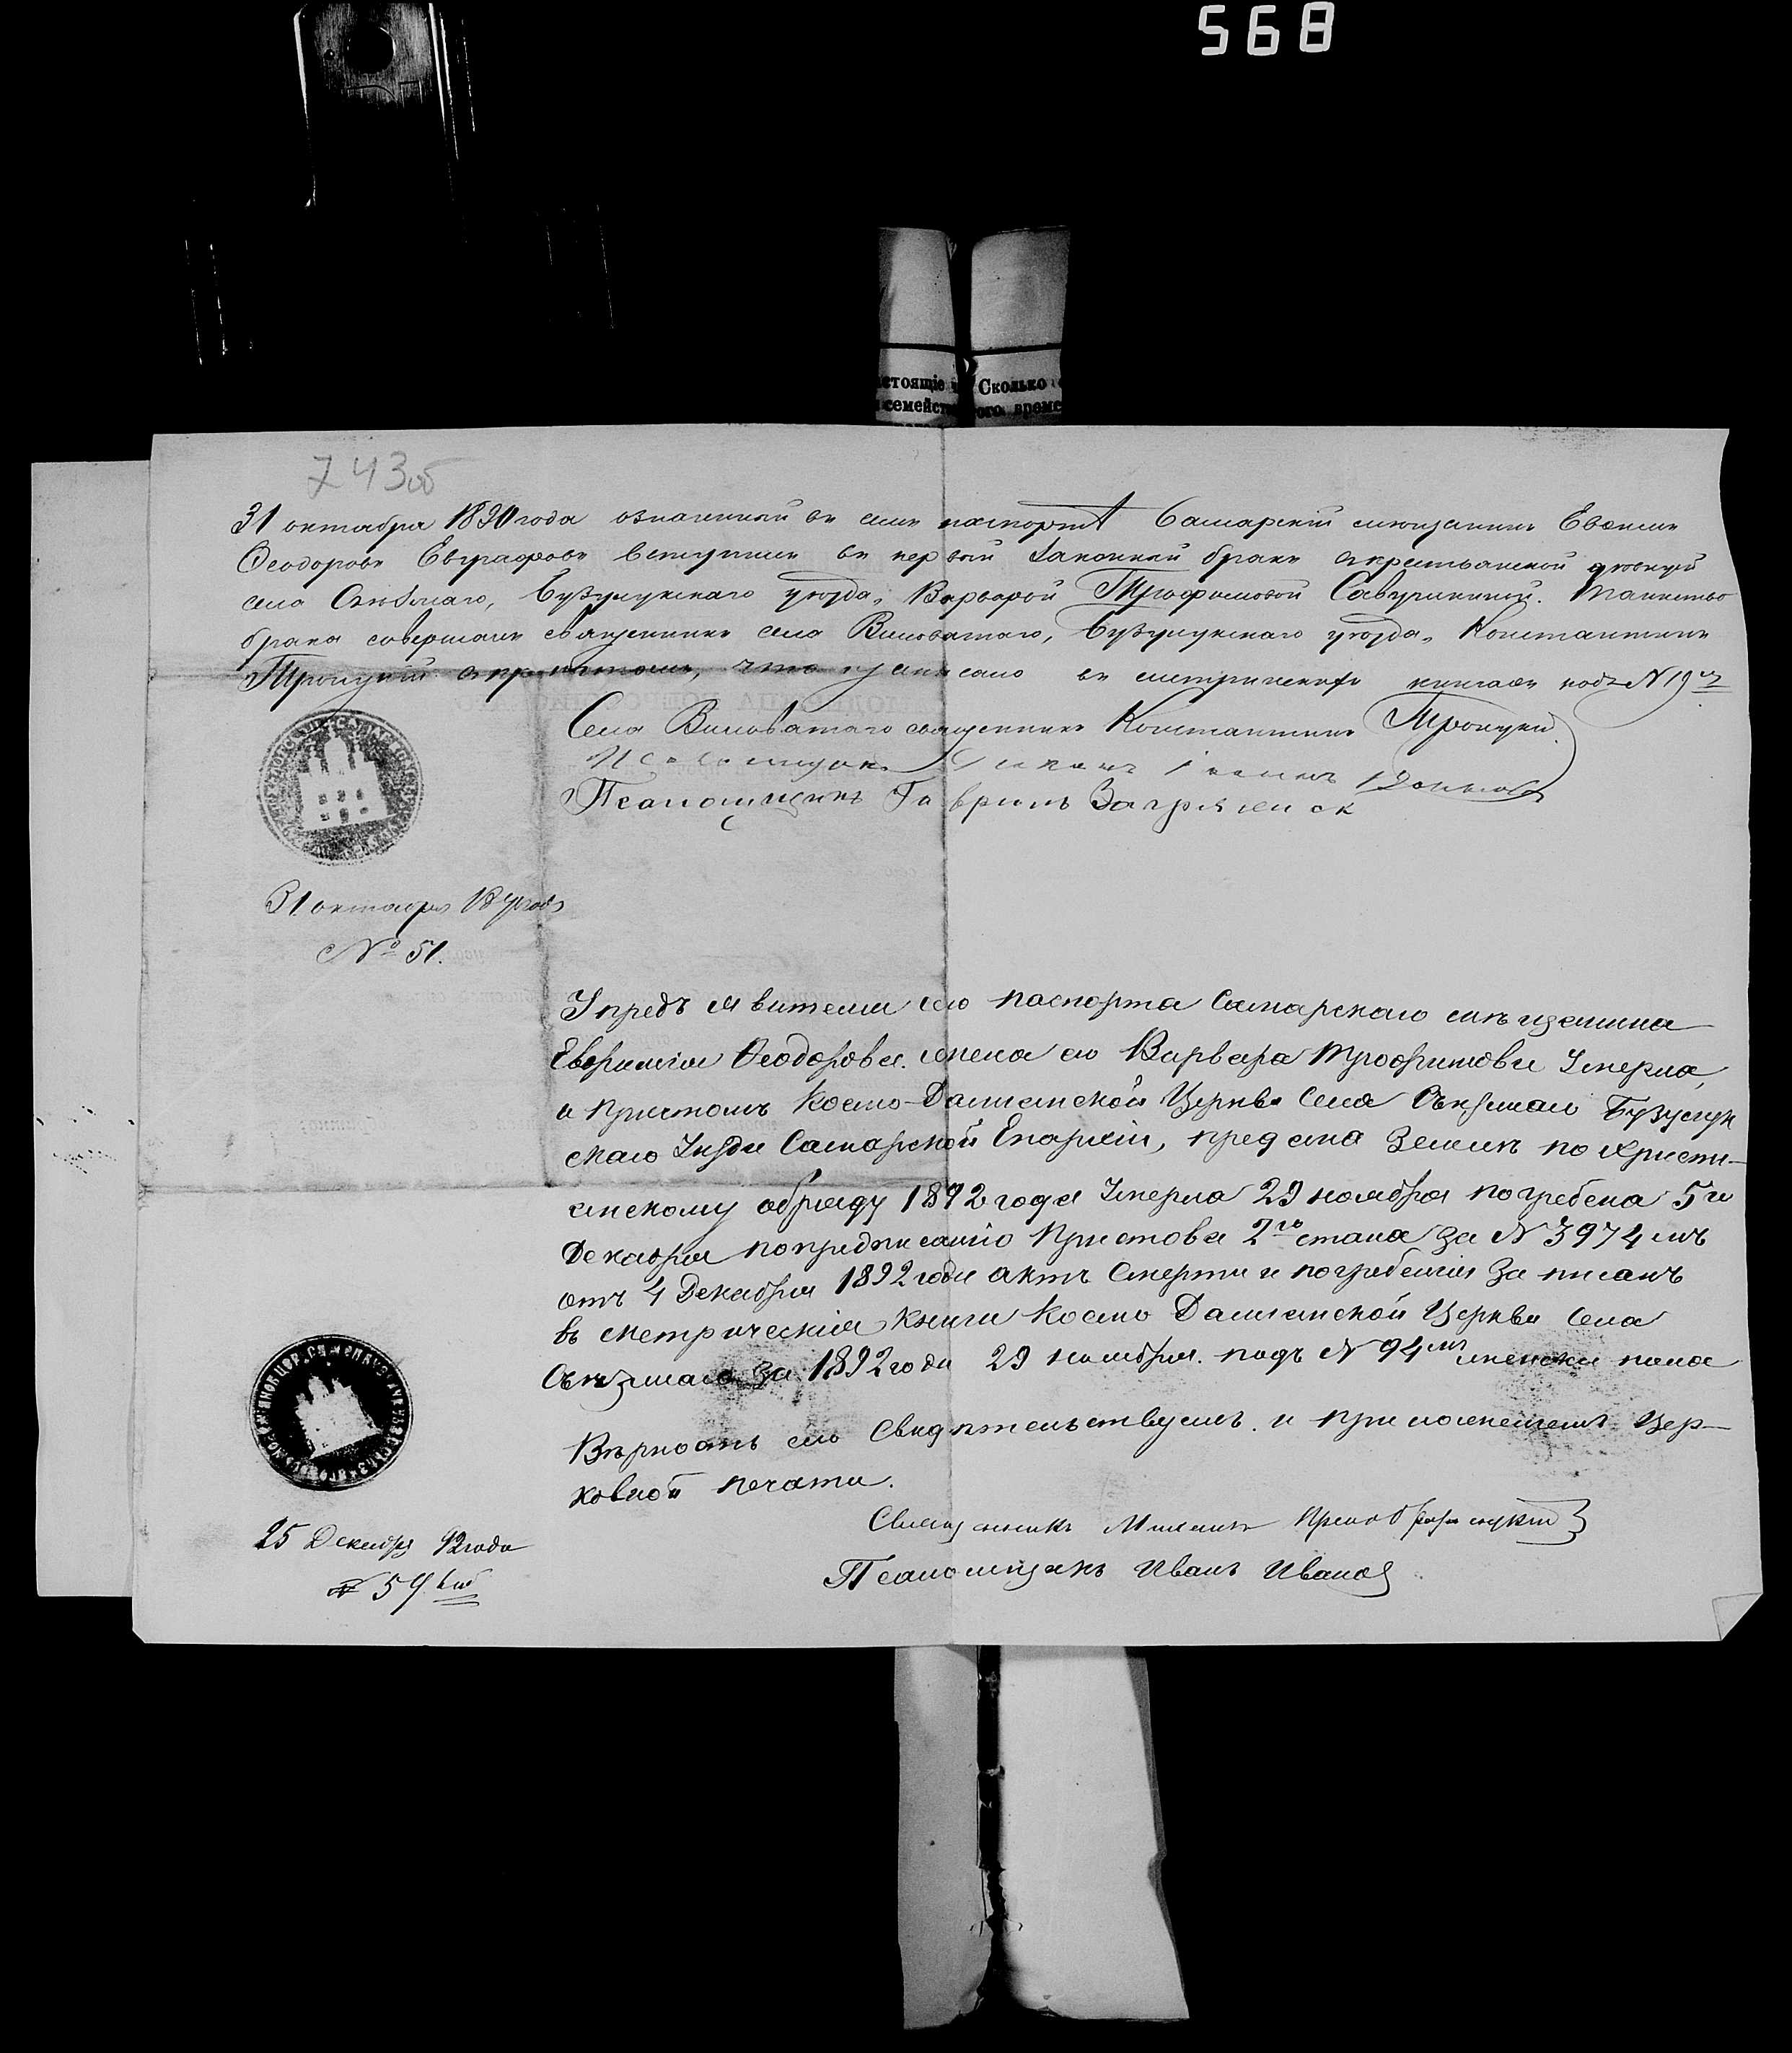 568
стоящіе Сколько
семейст ого време
743об
31 октября 1890 года означенный въ семъ паспортѣ Самарскій мѣщанинъ Евѳимъ
Ѳеодоровъ Евграфовъ вступилъ въ первый законный бракъ съ крестьянской дѣвицей
села Съѣзжаго, Бузулукскаго уѣзда, Варварой Трофимовой Савушкиной. Таинство
брака совершалъ священникъ села Виловатаго, Бузулукскаго уѣзда, Константинъ
Троицкій съ причтомъ, что и записано въ метрическихъ книгахъ подъ N 19
Села Виловатаго священникъ Константинъ Троицкій
Псаломщикъ Гавріилъ
31 октября 18 года
№ 51.
У предъявителя сего паспорта Самарскаго мѣщанина
Евфимія Ѳеодорова жена его Варвара Трофимова Умерла,
и причтомъ Космо-Даміанской Церкви Села Съѣзжаго Бузулук
скаго Уѣзда Самарской Епархіи, предана Землѣ по христі-
анскому обряду 1892 года Умерла 29 ноября погребена 5 го
Декабря по предписанію Пристава 2го стана за N 3974 мъ
отъ 4 Декабря 1892 года актъ Смерти и погребенія Записанъ
въ метрическія книги Космо Даміанской Церкви Села
Съѣзжаго за 1892 годъ 29 ноября. подъ N 94 мъ женска пола
Вѣрность сего Свидѣтельствуемъ и приложеніемъ Цер-
ковной печати.
Священникъ Михаилъ Преображенскій
Псаломщикъ Иванъ Ивановъ
25 Декабря 92 года
№ 54